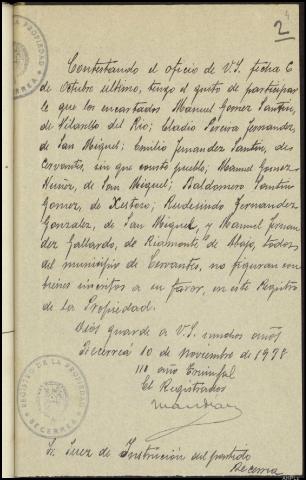 2
Contestando el oficio de V.S. fecha 6
de Octubre último, tengo el gusto de participar
le que los encartados Manuel Gomez Santin,
de Vilarello del Rio; Eladio Pereira Fernandez,
de San Miguel; Emilio Fernandez Santin, de
Cervantes, sin que conste pueblo; Manuel Gomez
Nuñez, de San Miguel; Baldomero Santin
Gomez, de Xestoso; Rudesindo Fernandez
Gonzalez, de San Miguel, y Manuel Fernan
dez Gallardo, de Riamonte de Abajo, todos
del municipio de Cervantes, no figuran con
bienes inscritos a su favor, en este Registro
de la Propiedad.
Dios guarde a V.S. muchos años
Becerreá 10 de Noviembre de 1938
III año Triunfal
El Registrador
Sr. Juez de Instrucción del partido
Becerrea
REGISTRO DE LA PROPIEDAD
BECERREÁ